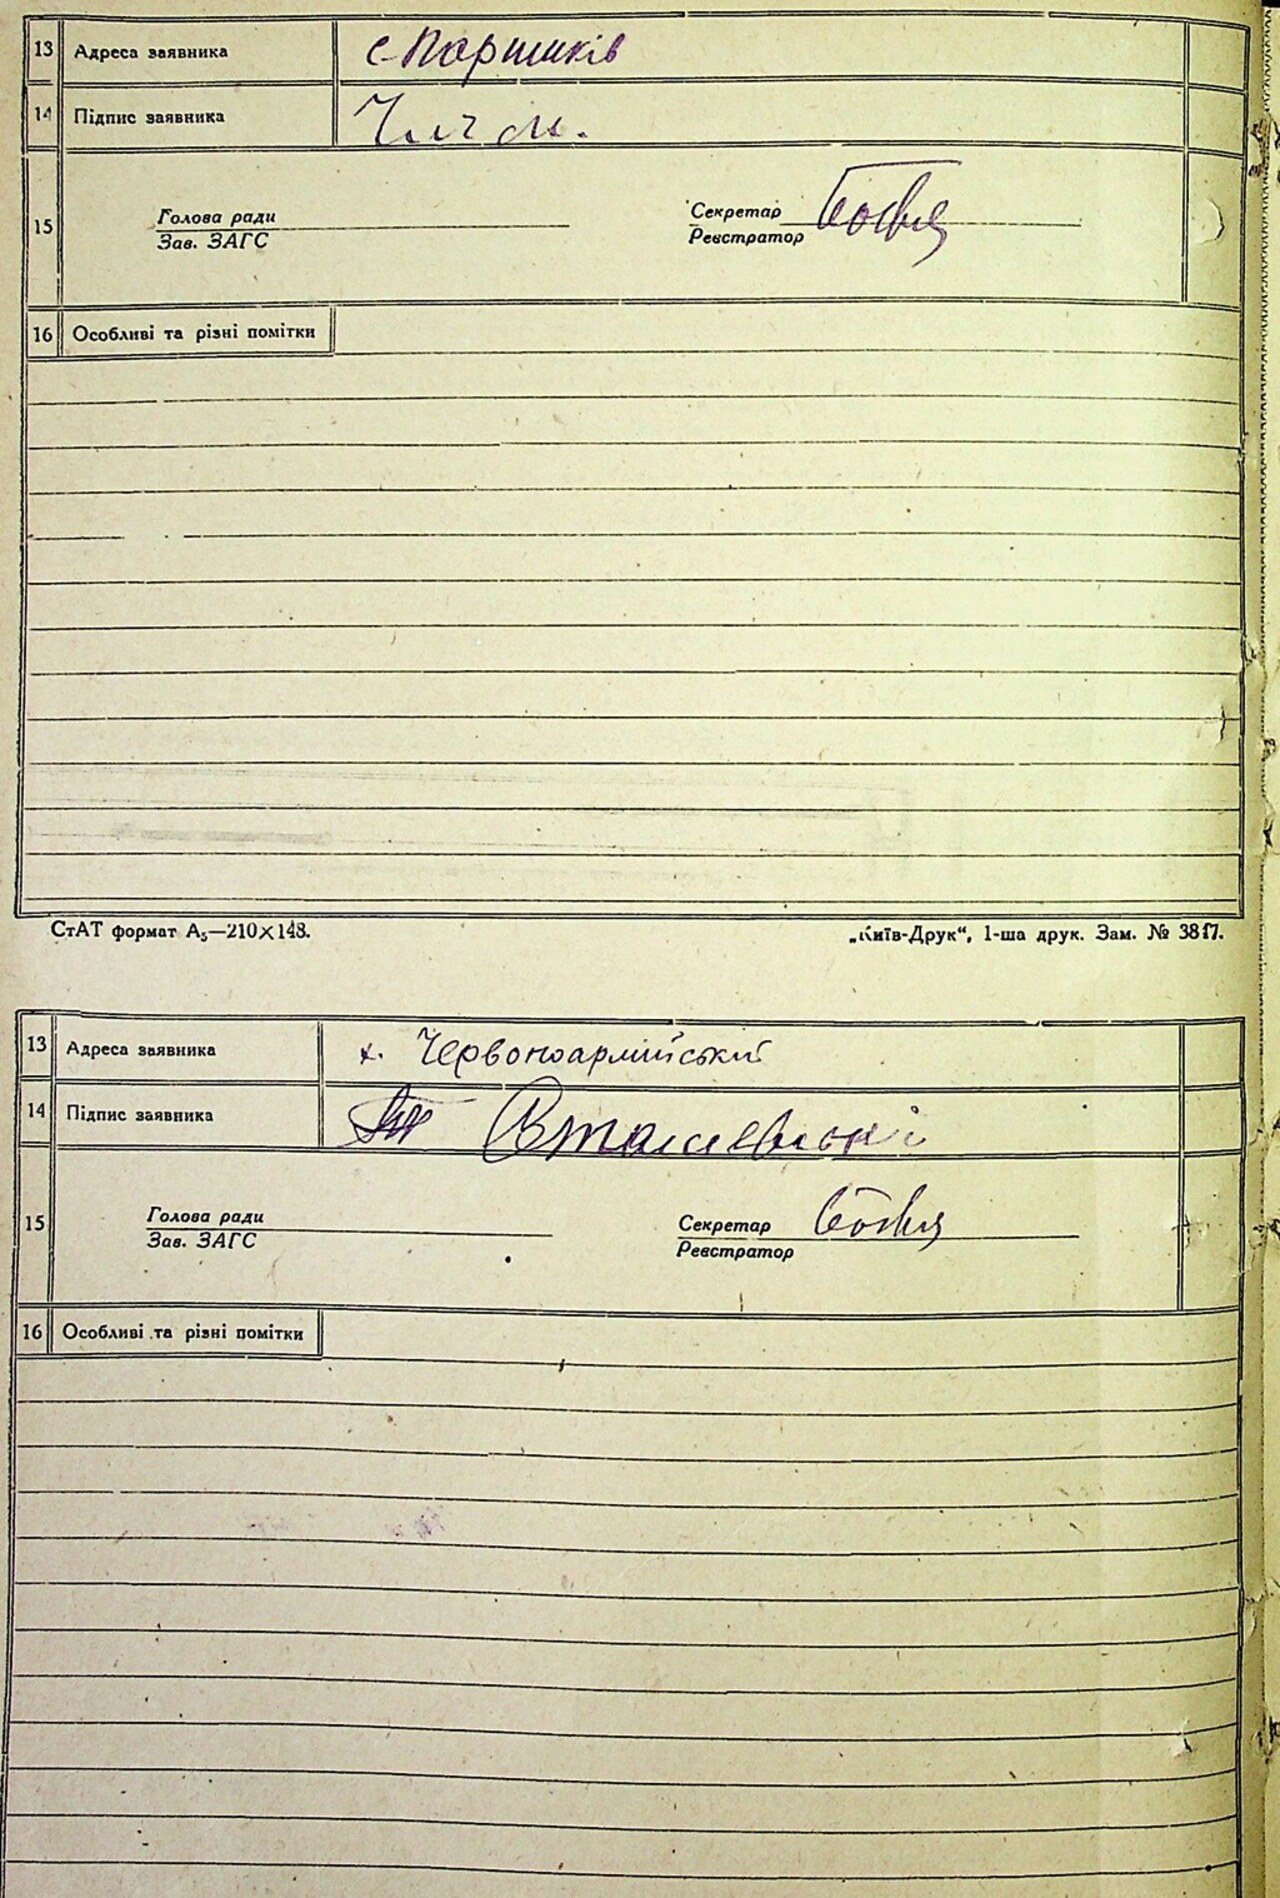 13 Адреса заявника с Паршиків
14 Підпис заявника
15 Голова ради Секретар
Зав. ЗАГС Реєстратор
16 Особливі та різні помітки
СтАТ формат А₅—210×148. „Київ-Друк“, 1-ша друк. Зам. № 3817.
13 Адреса заявника х. Червоноармійський
14 Підпис заявника
15 Голова ради Секретар
Зав. ЗАГС Реєстратор
16 Особливі та різні помітки